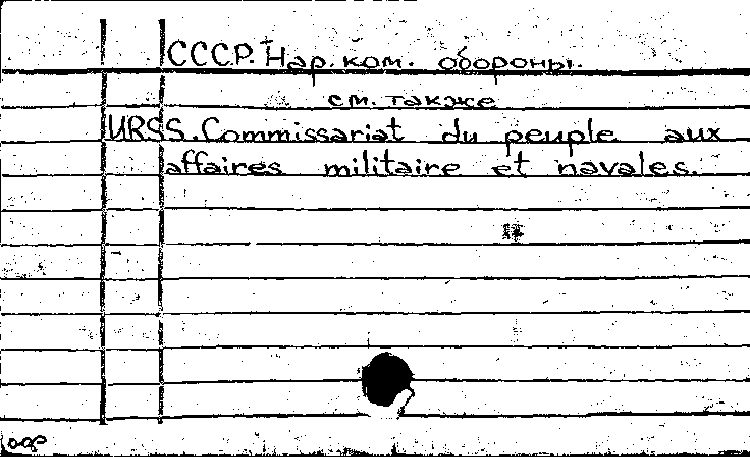 СССР. Нар. ком. обороны.
см. также
URSS. Commissariat du peuple aux
affaires militaire et navales.